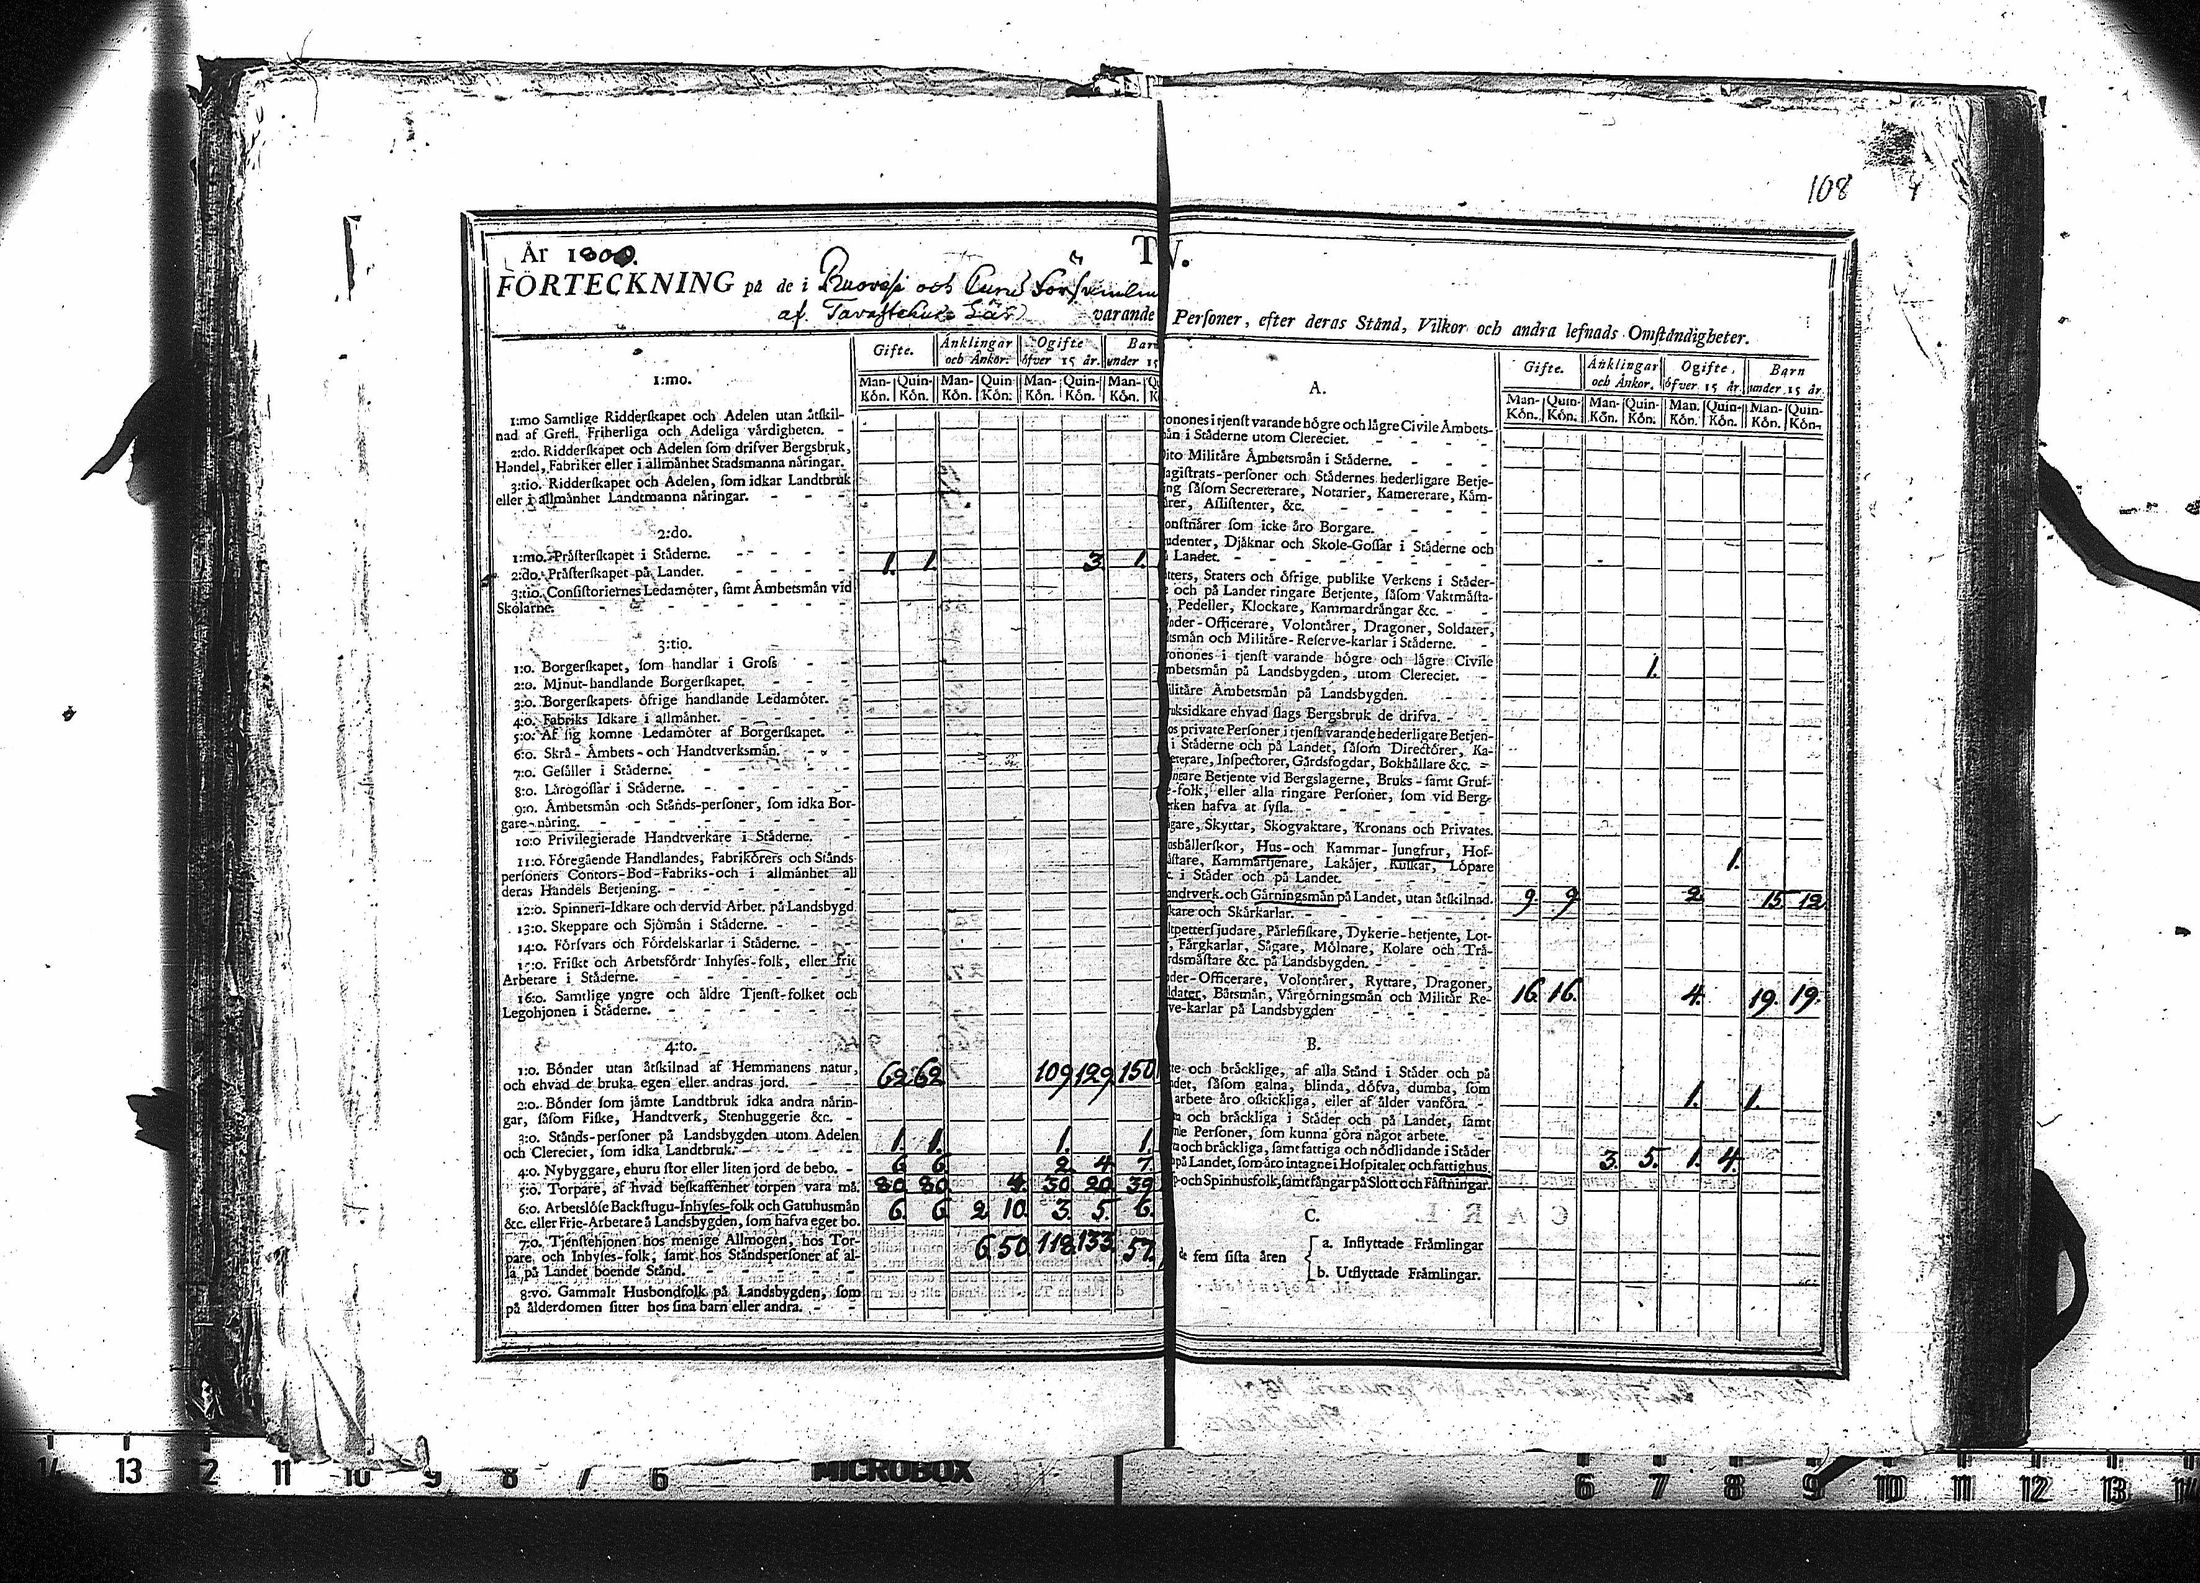 108
År 1800.
TV.
FÖRTECKNING på de i Ruovesi och Curu
af Tavastehus Län
varande Personer, efter deras Stånd, Vilkor och andra lefnads Omståndigheter.
Gifte. Ånklingar och Ånkor. Ogifte öfver 15 år. Barn under 15
Man-Kön. Quin-Kön. Man-Kön. Quin-Kön. Man-Kön. Quin-Kön. Man-Kön.
1:mo.
1:mo Samtlige Ridderskapet och Adelen utan åtskil-
nad af Grefl. Friherliga och Adeliga vårdigheten. -
2:do. Ridderskapet och Adelen som drifver Bergsbruk,
Handel, Fabriker eller i allmånhet Stadsmanna nåringar.
3:tio. Ridderskapet och Adelen, som idkar Landtbruk
eller i allmånhet Landtmanna nåringar.
2:do.
1:mo. Pråsterskapet i Ståderne.
2:do. Pråsterskapet på Landet. 1. 1. 3. 1.
3:tio. Consistoriernes Ledamöter, samt Åmbetsmån vid
Skolarne.
3:tio.
1:o. Borgerskapet, som handlar i Gross
2:o. Minut-handlande Borgerskapet.
3:o. Borgerskapets öfrige handlande Ledamöter.
4:o. Fabriks Idkare i allmånhet.
5:o. Af sig komne Ledamöter af Borgerskapet.
6:o. Skrå-Åmbets-och Handtverksmån.
7:o. Gesåller i Ståderne.
8:o. Lårogossar i Ståderne.
9:o. Åmbetsmån och Stånds-personer, som idka Bor-
gare-nåring.
10:o Privilegierade Handtverkare i Ståderne.
11:o. Föregående Handlandes, Fabrikörers och Stånds-
personers Contors-Bod-Fabriks-och i allmånhet all
deras Handels Betjening.
12:o. Spinneri-Idkare och dervid Arbet. på Landsbygd
13:o. Skeppare och Sjömån i Ståderne.
14:o. Försvars och Fördelskarlar i Ståderne.
15:o. Friskt och Arbetsfördt Inhyses-folk, eller frie
Arbetare i Ståderne.
16:o. Samtlige yngre och åldre Tjenst-folket och
Legohjonen i Ståderne.
4:to.
1:o. Bönder utan åtskilnad af Hemmanens natur,
och ehvad de bruka egen eller andras jord. 62 62 109 129 150
2:o. Bönder som jåmte Landtbruk idka andra nårin-
gar, såsom Fiske, Handtverk, Stenhuggerie &c. -
3:o. Stånds-personer på Landsbygden utom Adelen
och Clereciet, som idka Landtbruk. 1. 1. 1. 1.
4:o. Nybyggare, ehuru stor eller liten jord de bebo. - 6 6 2. 4. 7.
5:o. Torpare, af hvad beskaffenhet torpen vara må. 80 80 4. 30 20 39
6:o. Arbetslöse Backstugu-Inhyses-folk och Gatuhusmån
&c. eller Frie-Arbetare å Landsbygden, som hafva eget bo. 6. 6. 2 10. 3. 5. 6.
7:o. Tjenstehjonen hos menige Allmogen, hos Tor-
pare och Inhyses-folk, samt hos Ståndspersoner af al-
la på Landet boende Stånd. 6. 50 118. 133 57.
8:vo. Gammalt Husbondfolk på Landsbygden, som
på ålderdomen sitter hos sina barn eller andra.
A.
Gifte. Ånklingar och Ånkor. Ogifte öfver 15 år. Barn under 15 år.
Man-Kön. Quin-Kön. Man-Kön. Quin-Kön. Man-Kön. Quin-Kön. Man-Kön. Quin-Kön.
ronones i tjenst varande högre och lågre Civile Åmbets-
mån i Ståderne utom Clereciet.
Dito Militåre Åmbetsmån i Ståderne.
Magistrats-personer och Stådernes hederligare Betje-
ning såsom Secreterare, Notarier, Kamererare, Kåm-
nårer, Assistenter, &c.
onstnårer som icke åro Borgare.
udenter, Djåknar och Skole-Gossar i Ståderne och
Landet.
tters, Staters och öfrige publike Verkens i Ståder-
e och på Landet ringare Betjente, såsom Vaktmåsta-
, Pedeller, Klockare, Kammardrångar &c.
nder-Officerare, Volontårer, Dragoner, Soldater,
tsmån och Militåre-Reserve-karlar i Ståderne.
ronones i tjenst varande högre och lågre Civile
mbetsmån på Landsbygden, utom Clereciet. 1.
ilitåre Åmbetsmån på Landsbygden.
uksidkare ehvad slags Bergsbruk de drifva.
os private Personer i tjenst varande hederligare Betjen-
i Ståderne och på Landet, såsom Directörer, Ka-
ererare, Inspectorer, Gårdsfogdar, Bokhållare &c.
ngare Betjente vid Bergslagerne, Bruks-samt Gruf-
e-folk, eller alla ringare Personer, som vid Berg-
rken hafva at syssla.
gare, Skyttar, Skogvaktare, Kronans och Privates.
ushållerskor, Hus-och Kammar-Jungfrur, Hof-
åstare, Kammartjenare, Lakåjer, Kuskar, Löpare
c. i Ståder och på Landet. 1.
andtverk. och Gårningsmån på Landet, utan åtskilnad. 9 9 2. 15 12.
kare och Skårkarlar.
ltpettersjudare, Pårlefiskare, Dykerie-betjente, Lot-
, Fårgkarlar, Sågare, Mölnare, Kolare och Trå-
rdsmåstare &c. på Landsbygden.
der-Officerare, Volontårer, Ryttare, Dragoner,
ldater, Båtsmån, Vårgörningsmån och Militår Re-
ve-karlar på Landsbygden 16. 16. 4. 19. 19.
B.
te och bråcklige, af alla Stånd i Ståder och på
ndet, såsom galna, blinda, döfva, dumba, som
arbete åro oskickliga, eller af ålder vanföra. 1. 1.
a och bråckliga i Ståder och på Landet, samt
nle Personer, som kunna göra något arbete.
a och bråckliga, samt fattiga och nödlidande i Ståder
på Landet, som åro intagne i Hospitaler och fattighus. 3. 5. 1. 4.
p-och Spinhusfolk, samt fångar på Slott och Fåstningar.
C.
e fem sista åren { a. Inflyttade Fråmlingar
b. Utflyttade Fråmlingar.
14 13 12 11 10 9 8 7 6 MICROBOX 6 7 8 9 10 11 12 13 14